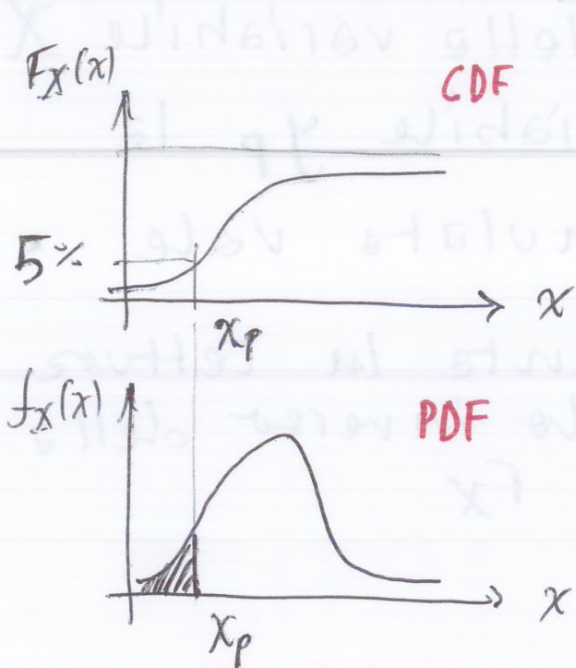 F_X(x)
CDF
5%
x_p
x
f_X(x)
PDF
x_p
x